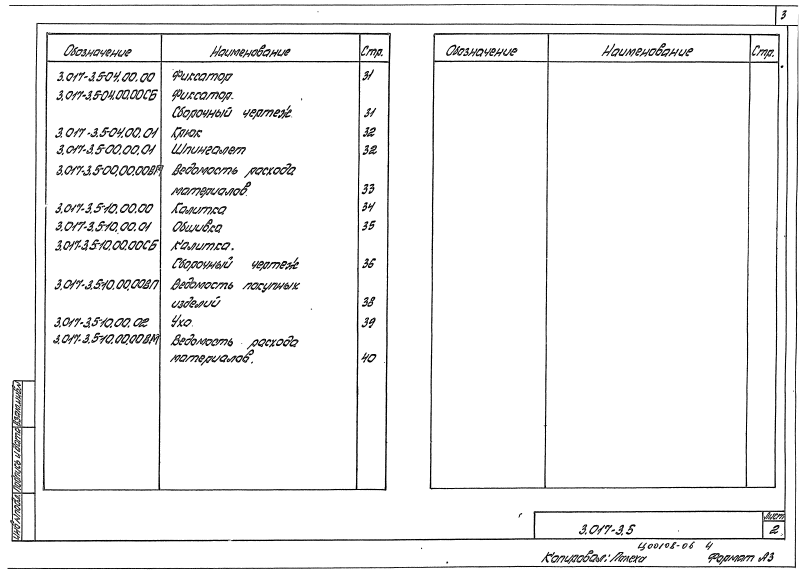 3
Обозначение Наименование Стр.
3.017-3.5-04.00.00 Фиксатор 31
3.017-3.5-04.00.00СБ Фиксатор.
Сборочный чертеж 31
3.017-3.5-04.00.01 Крюк 32
3.017-3.5-00.00.01 Шпингалет 32
3.017-3.5-00.00.00ВМ Ведомость расхода
материалов 33
3.017-3.5-10.00.00 Калитка 34
3.017-3.5-10.00.01 Обшивка 35
3.017-3.5-10.00.00СБ Калитка.
Сборочный чертеж 36
3.017-3.5-10.00.00ВП Ведомость покупных
изделий 38
3.017-3.5-10.00.02 Ухо 39
3.017-3.5-10.00.00ВМ Ведомость расхода
материалов. 40
Обозначение Наименование Стр.
Инв.№подл. Подпись и дата Взам.инв.№
3.017-3.5
Лист
2
Ц00108-06 4
Копировал: Формат А3